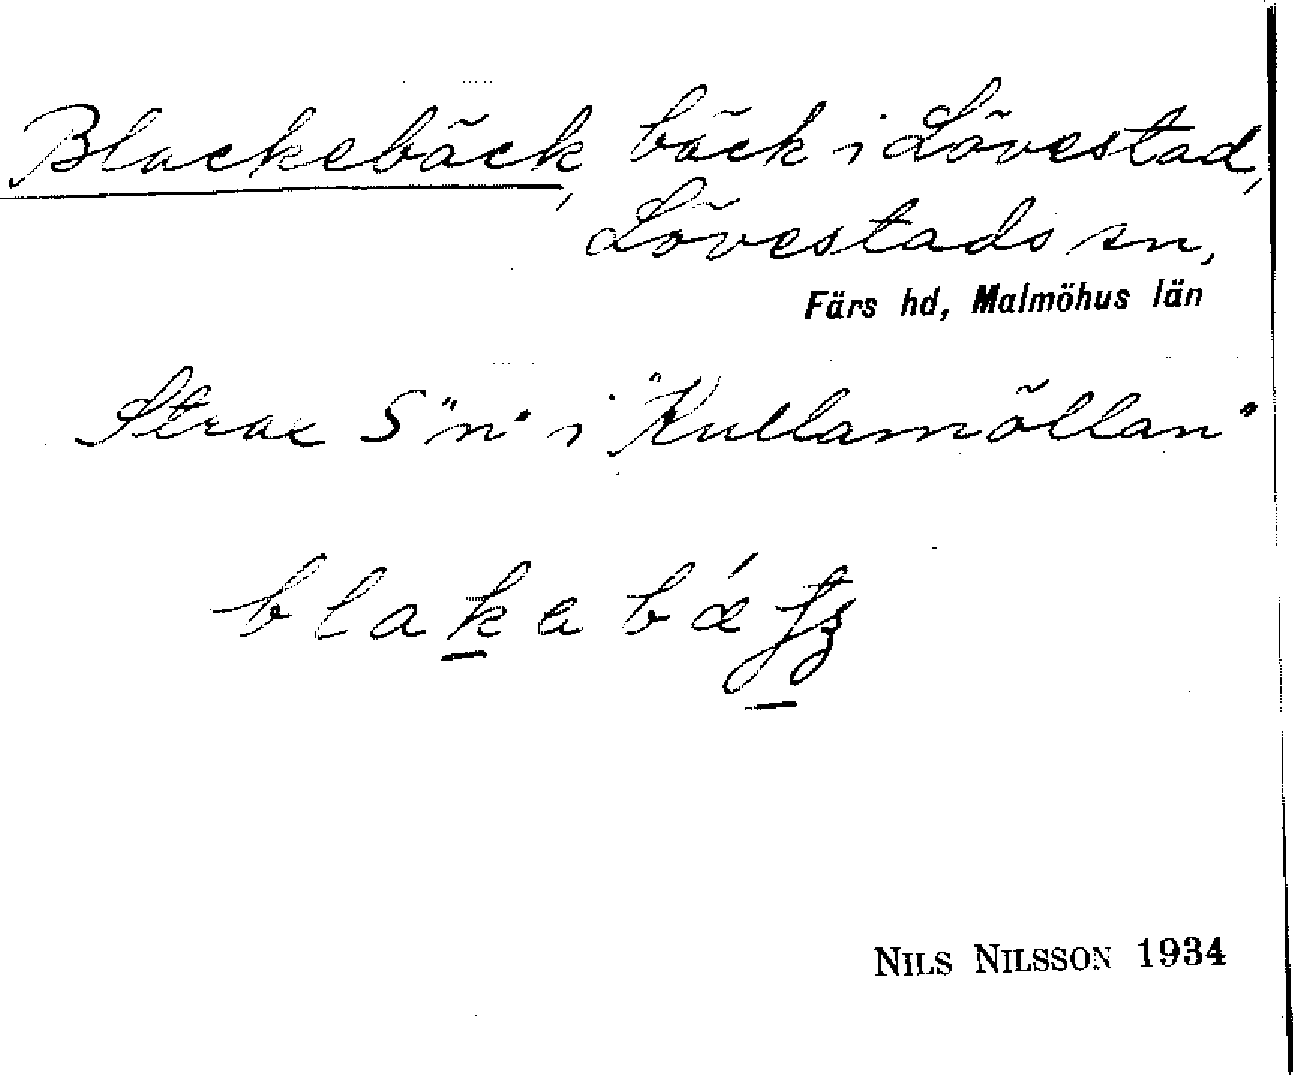 Blackebäck, bäck i Lövestad,
Lövestads sn,
Färs hd, Malmöhus län
Strax S "n" i "Kullamöllan"
NILS NILSSON 1934